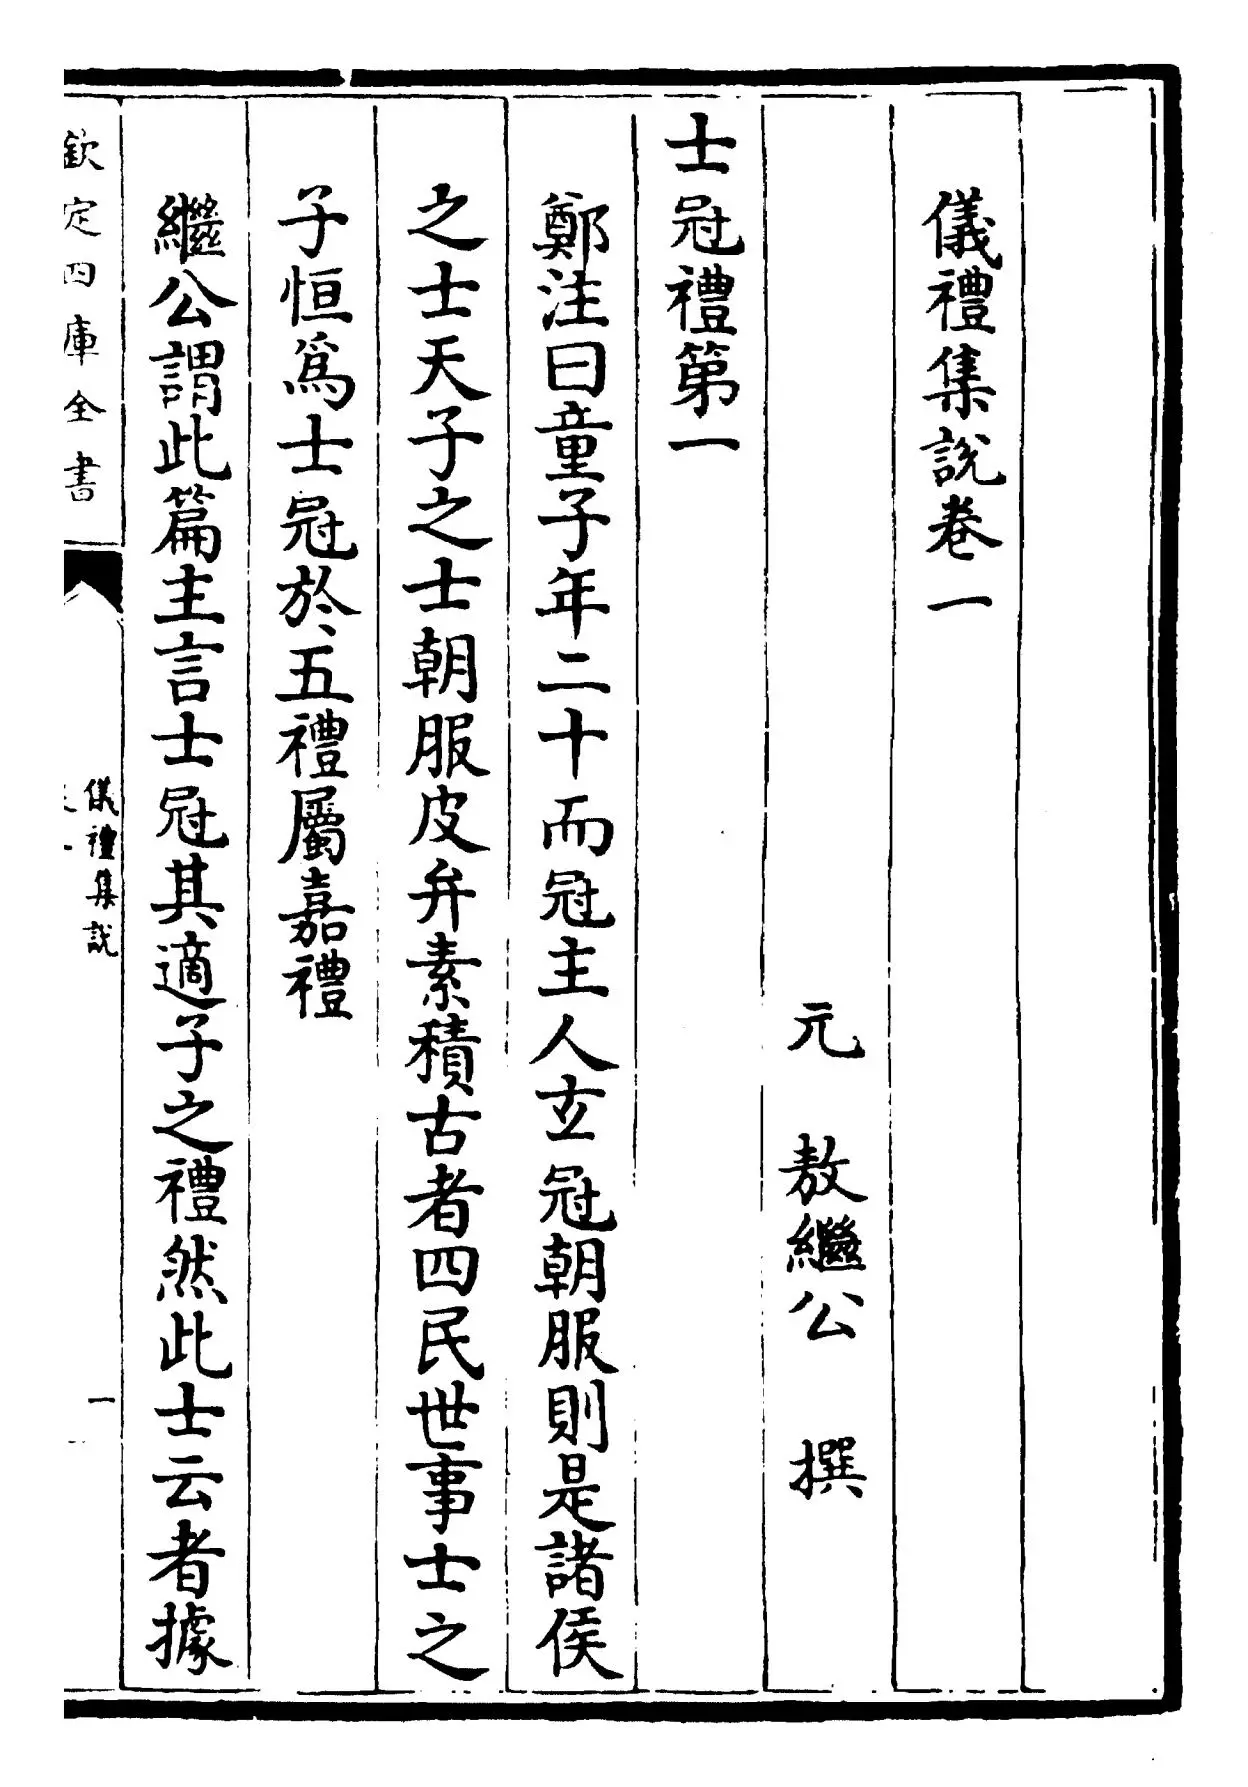 儀禮集說卷一
元　敖繼公　撰
士冠禮第一
鄭注曰童子年二十而冠主人玄冠朝服則是諸侯
之士天子之士朝服皮弁素積古者四民世事士之
子恒為士冠於五禮屬嘉禮
繼公謂此篇主言士冠其適子之禮然此士云者據
欽定四庫全書
儀禮集說
一